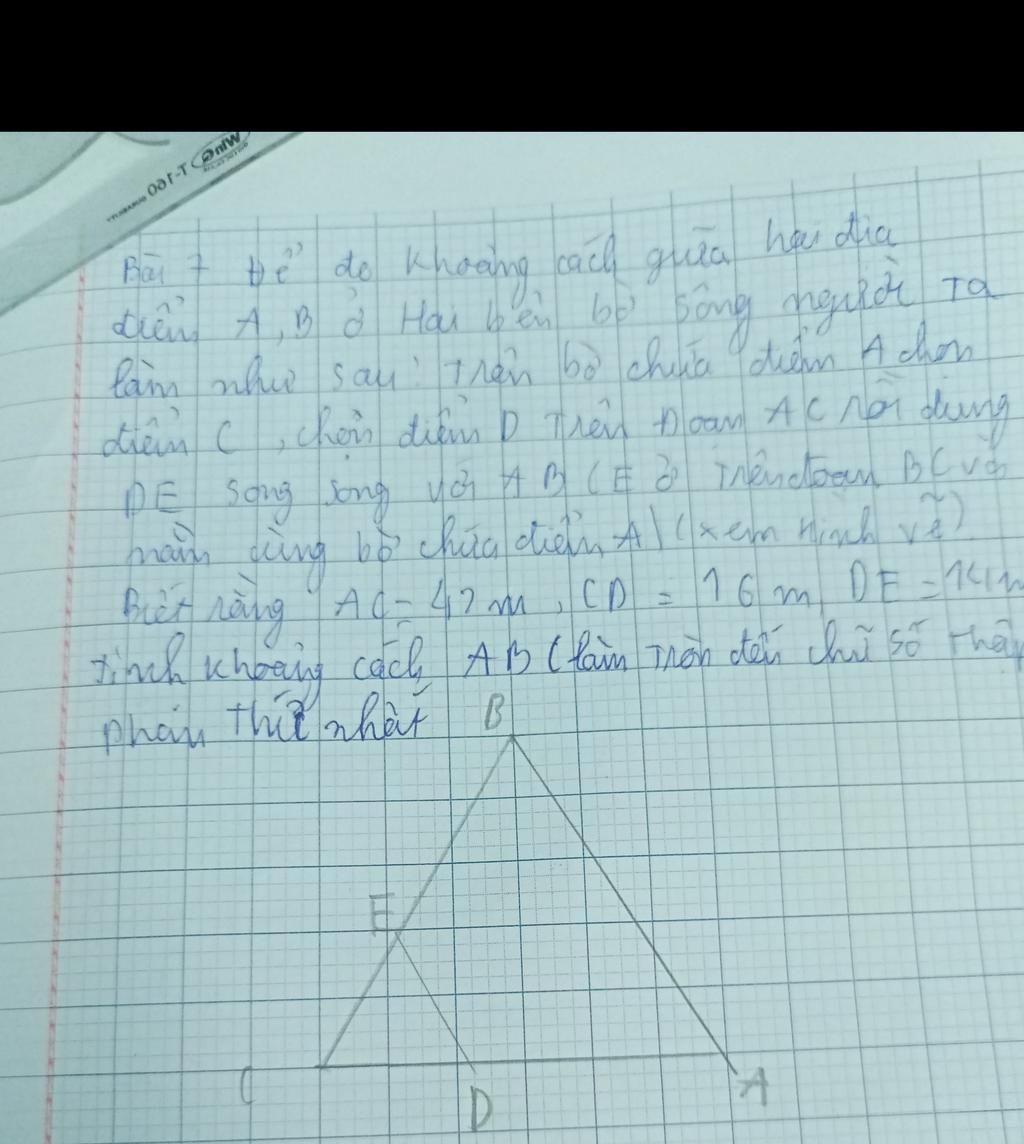 WinG T-160
Bài 7 Để đo khoảng cách giữa hai địa
điểm A, B ở Hai bên bờ sông người Ta
làm như sau: Trên bờ chứa điểm A chọn
điểm C, chọn điểm D Trên Đoạn AC rồi dựng
DE song song với AB (E ở Trên đoạn BC và
nằm cùng bờ chứa điểm A) (xem Hình vẽ)
Biết rằng AC = 42 m, CD = 16 m DE =
Tính khoảng cách AB (làm Tròn đến chữ số Thập
phân Thứ nhất
B
E
C
D
A